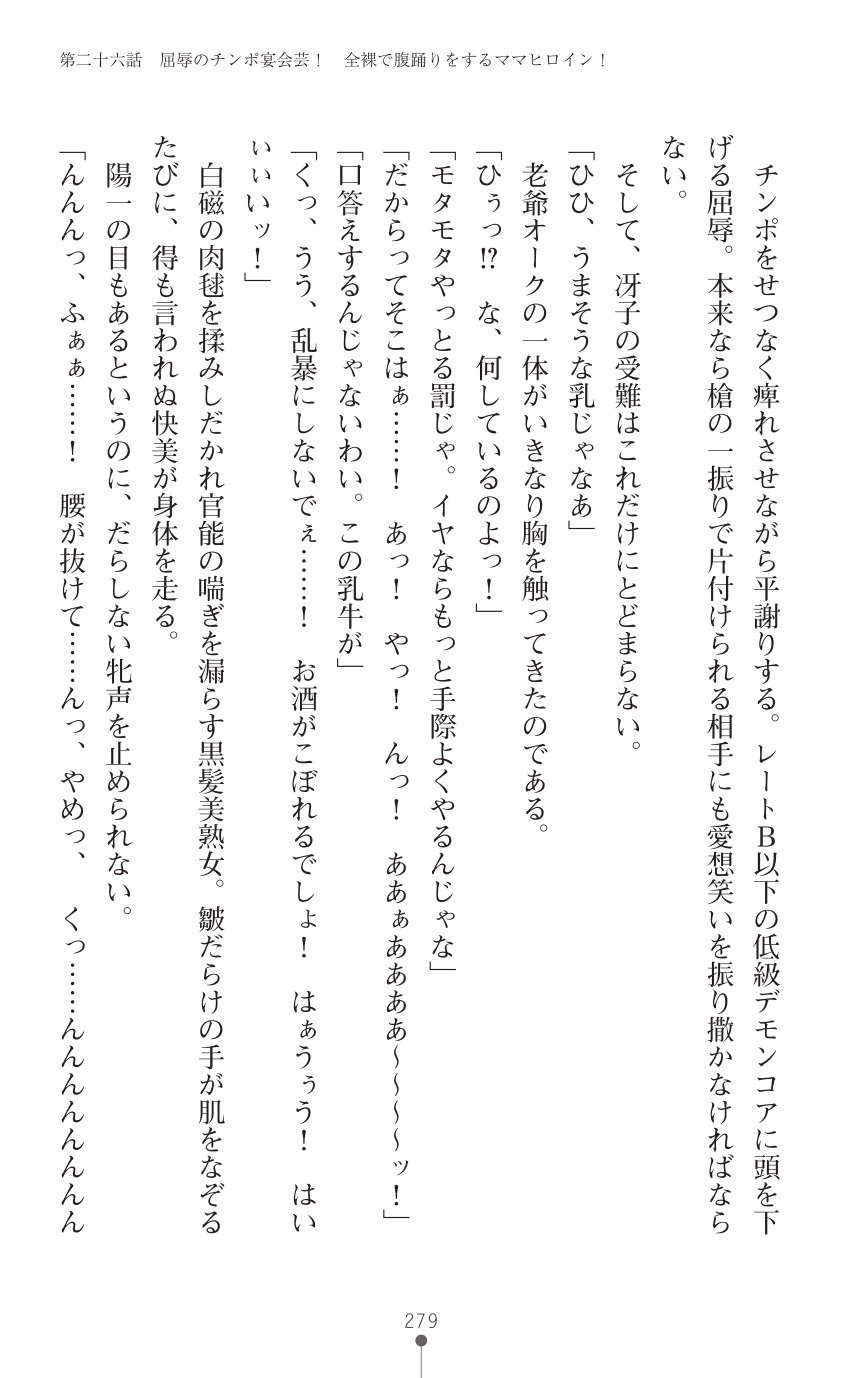 第二十六話　屈辱のチンポ宴会芸！　全裸で腹踊りをするママヒロイン！
　チンポをせつなく痺れさせながら平謝りする。レートＢ以下の低級デモンコアに頭を下
げる屈辱。本来なら槍の一振りで片付けられる相手にも愛想笑いを振り撒かなければなら
ない。
　そして、冴子の受難はこれだけにとどまらない。
「ひひ、うまそうな乳じゃなあ」
　老爺オークの一体がいきなり胸を触ってきたのである。
「ひぅっ!?　な、何しているのよっ！」
「モタモタやっとる罰じゃ。イヤならもっと手際よくやるんじゃな」
「だからってそこはぁ……！　あっ！　やっ！　んっ！　ああぁああああ～～～～ッ！」
「口答えするんじゃないわい。この乳牛が」
「くっ、うう、乱暴にしないでぇ……！　お酒がこぼれるでしょ！　はぁうぅう！　はい
ぃぃいッ！」
　白磁の肉毬を揉みしだかれ官能の喘ぎを漏らす黒髪美熟女。皺だらけの手が肌をなぞる
たびに、得も言われぬ快美が身体を走る。
　陽一の目もあるというのに、だらしない牝声を止められない。
「んんんっ、ふぁぁ……！　腰が抜けて……んっ、やめっ、くっ……んんんんんんんん
279